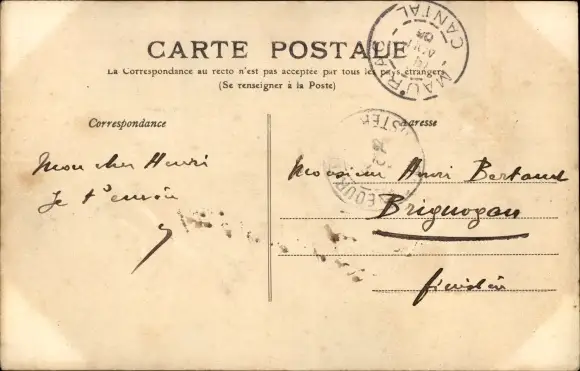 CARTE POSTALE
La Correspondance au recto n'est pas acceptée par tous les pays étrangers
(Se renseigner à la Poste)
MAURIAC
CANTAL
Correspondance
Adresse
Mon cher Henri
Je t'envoie
Monsieur Henri Bertaud
Brignogan
finistère